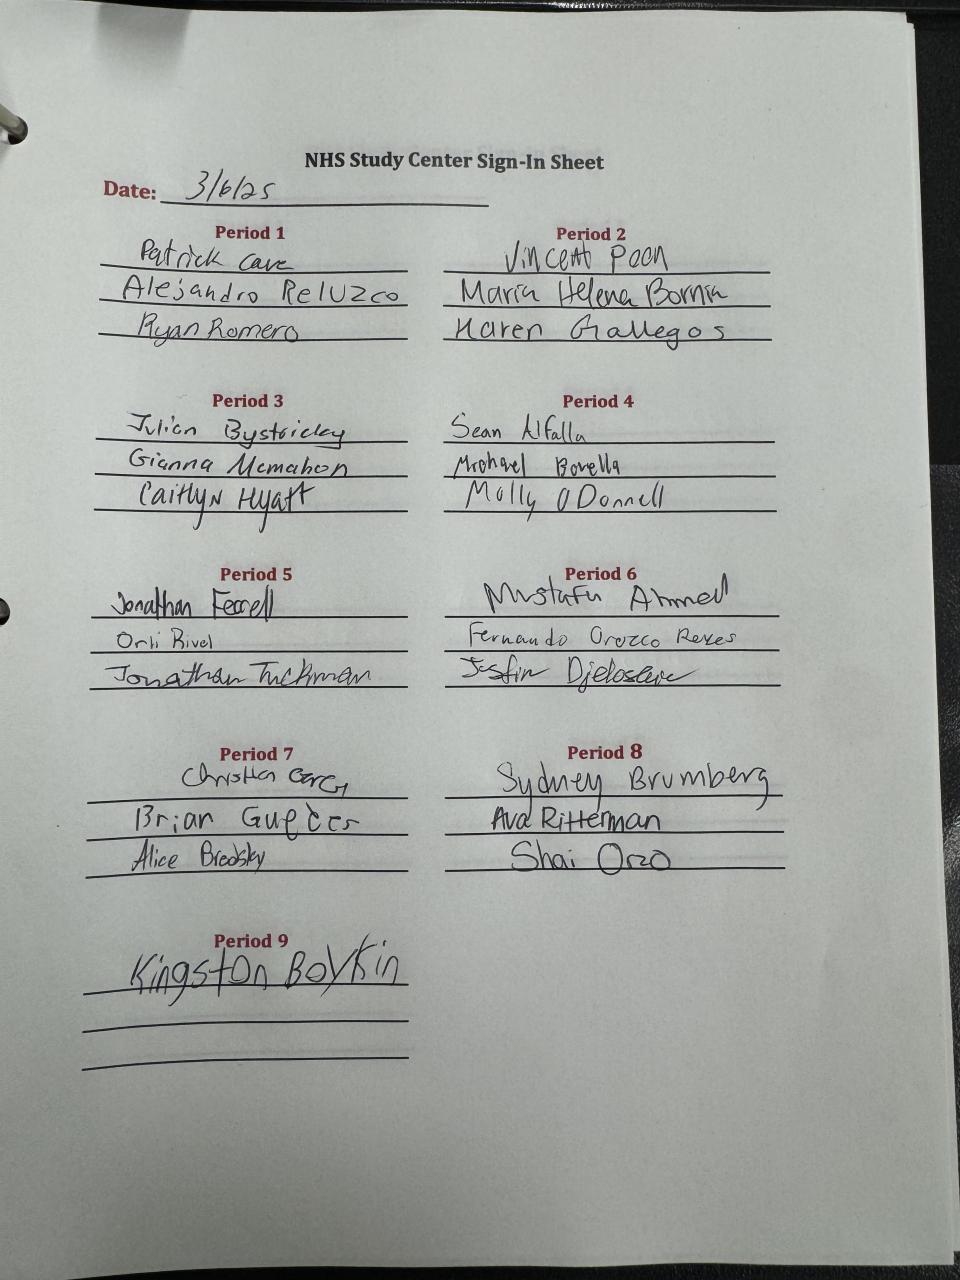 NHS Study Center Sign-In Sheet
Date: 3/6/25
Period 1
Patrick Cave
Alejandro Reluzco
Ryan Romero
Period 2
Vincent Poon
Maria Helena Bornia
Karen Gallegos
Period 3
Julian Bystricky
Gianna Mcmahon
Caitlyn Hyatt
Period 4
Sean Alfalla
Michael Bovella
Molly O Donnell
Period 5
Jonathan Ferrell
Orli
Jonathan Tuckman
Period 6
Mustafa Ahmed
Fernando Orozco Reyes
Justin
Period 7
Christian
Brian
Alice
Period 8
Sydney Brumberg
Ava Ritterman
Shai Orzo
Period 9
Kingston Boykin